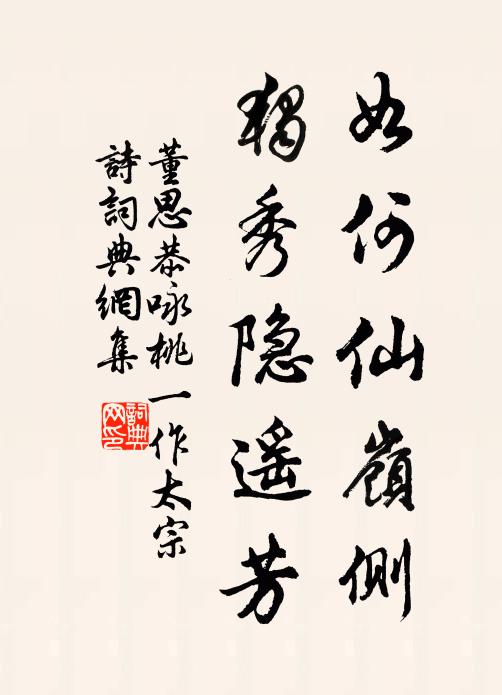 如何仙嶺側
獨秀隐遥芳
董思恭咏桃一作太宗
詩詞典網集
詞典
网印